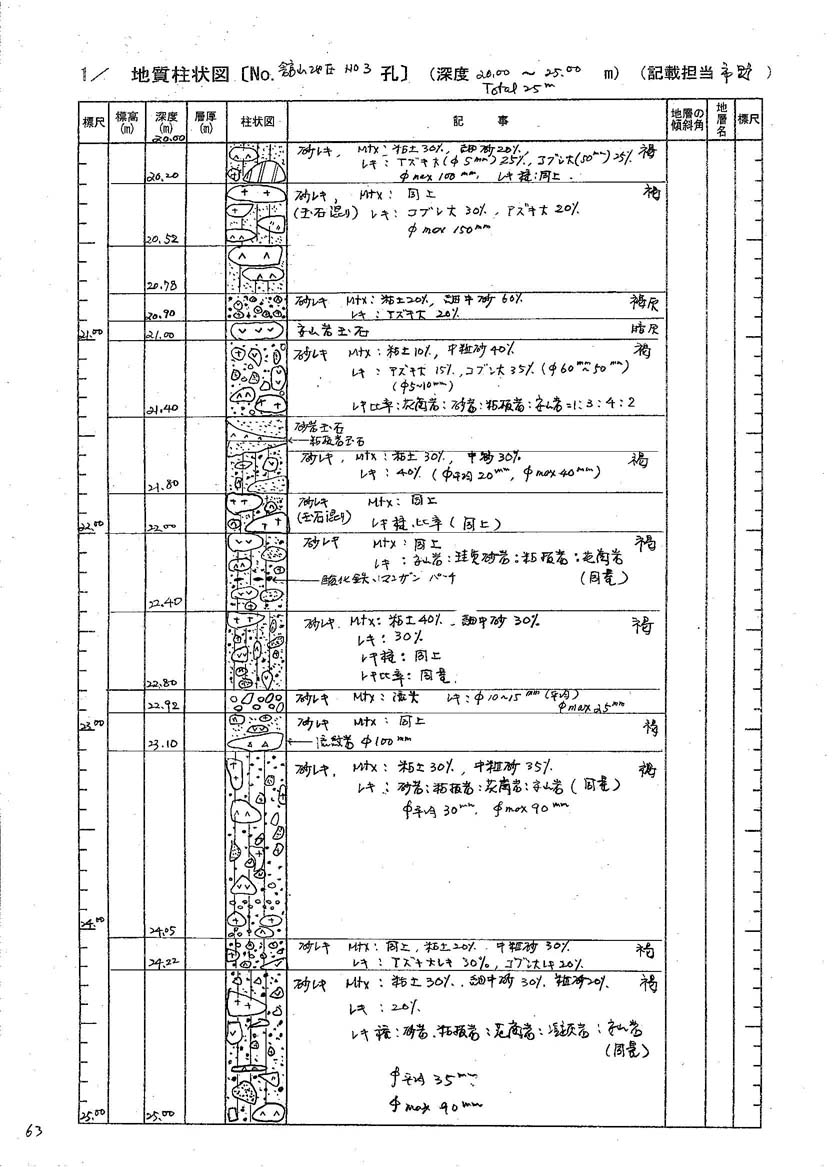 1/ 地質柱状図 〔No. 舘山地区 NO 3 孔〕 (深度 20.00 ~ 25.00 m) (記載担当 市野 )
Total 25m
標尺 標高(m) 深度(m) 層厚(m) 柱状図 記 事 地層の傾斜角 地層名 標尺
20.00
砂レキ, Mtx: 粘土30%, 細砂20% 褐
レキ: アズキ大(φ5mm)25%, コブシ大(50mm)25%
20.20 φmax 100mm, レキ種:同上.
砂レキ, Mtx: 同上 褐
(玉石混り) レキ: コブシ大 30%, アズキ大 20%
φmax 150mm
20.52
20.78
砂レキ Mtx: 粘土20%, 細中砂60% 褐灰
20.90 レキ: アズキ大 20%
21.00 21.00 安山岩玉石 暗灰
砂レキ Mtx: 粘土10%, 中粗砂40% 褐
レキ: アズキ大 15%, コブシ大 35% (φ60mm~50mm)
(φ5~10mm)
21.40 レキ比率:花崗岩:砂岩:粘板岩:安山岩=1:3:4:2
砂岩玉石
←粘板岩玉石
砂レキ, Mtx: 粘土30%, 中砂30% 褐
21.80 レキ: 40% (φ平均20mm, φmax40mm)
砂レキ Mtx: 同上
22.00 22.00 (玉石混り) レキ種、比率(同上)
砂レキ Mtx: 同上 褐
レキ: 安山岩:珪質砂岩:粘板岩:花崗岩
←酸化鉄、マンガン パーチ (同量)
22.40
砂レキ. Mtx: 粘土40%, 細中砂30% 褐
レキ: 30%
レキ種: 同上
22.80 レキ比率: 同量.
22.92 砂レキ Mtx: 流失 レキ: φ10~15mm(平均)
φmax25mm
23.00 砂レキ Mtx: 同上 褐
23.10 ←流紋岩 φ100mm
砂レキ, Mtx: 粘土30%, 中粗砂35% 褐
レキ: 砂岩:粘板岩:花崗岩:安山岩(同量)
φ平均30mm, φmax90mm
24.00
24.05
砂レキ Mtx: 同上, 粘土20%, 中粗砂30% 褐
24.22 レキ: アズキ大レキ30%, コブシ大レキ20%
砂レキ Mtx: 粘土30%, 細中砂30%, 粗砂20% 褐
レキ: 20%
レキ種: 砂岩、粘板岩:花崗岩:凝灰岩:安山岩
(同量)
φ平均 35mm
φmax 90mm
25.00 25.00
63